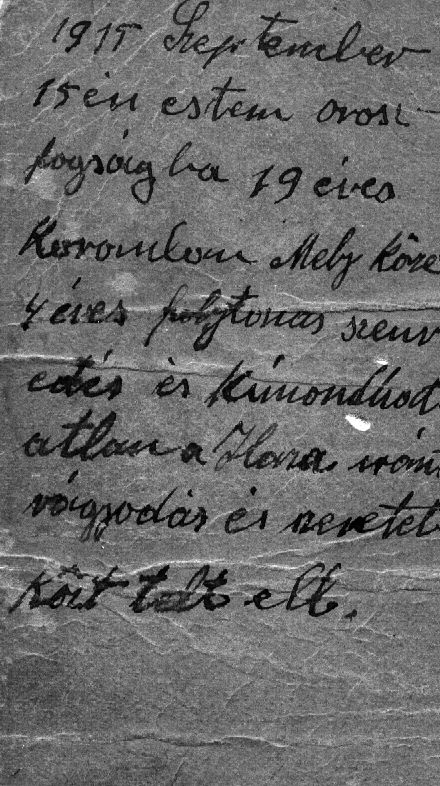 1915 September
15én estem orosz
fogságba 19 éves
koromban Mely köze
4 éves folytonos szenv
edés és kimondhat
atlan a Haza iránt
vágyodás és szeretet
közt telt ell.